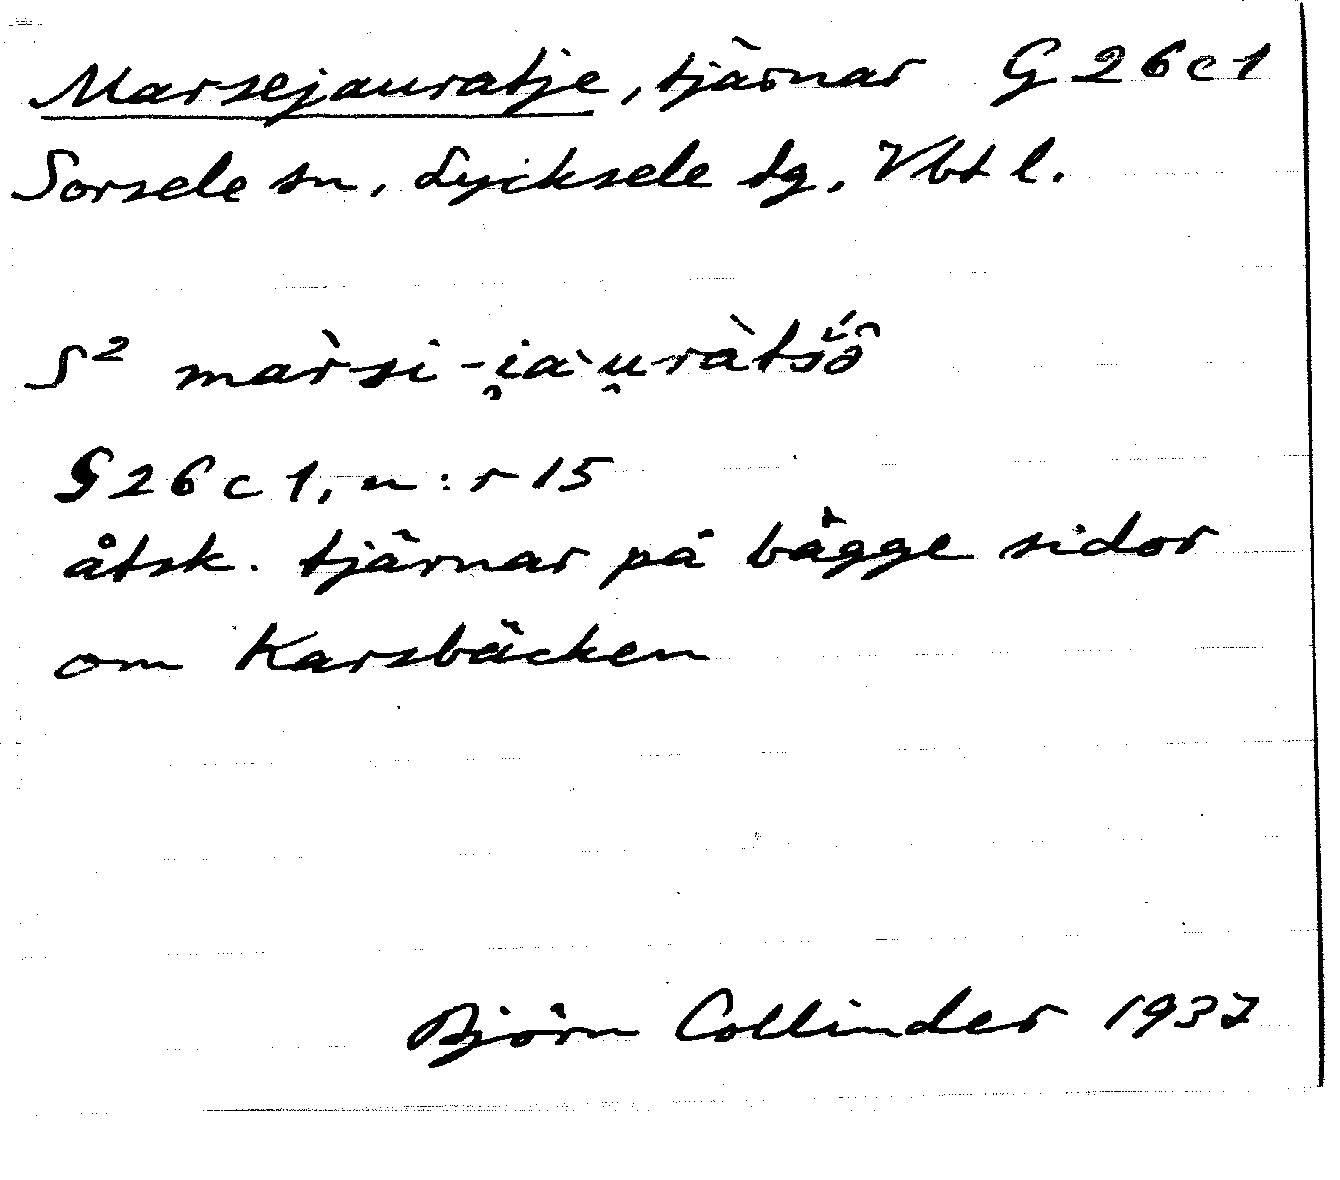 Marsejauratje, tjärnar G 26 c 1
Sorsele sn, Lycksele tg, Vbt l.
S² màrsi-i̯aˋu̯-ràtšö̂
G 26 c 1, n:r 15
åtsk. tjärnar på bägge sidor
om Karsbäcken
Björn Collinder 1937